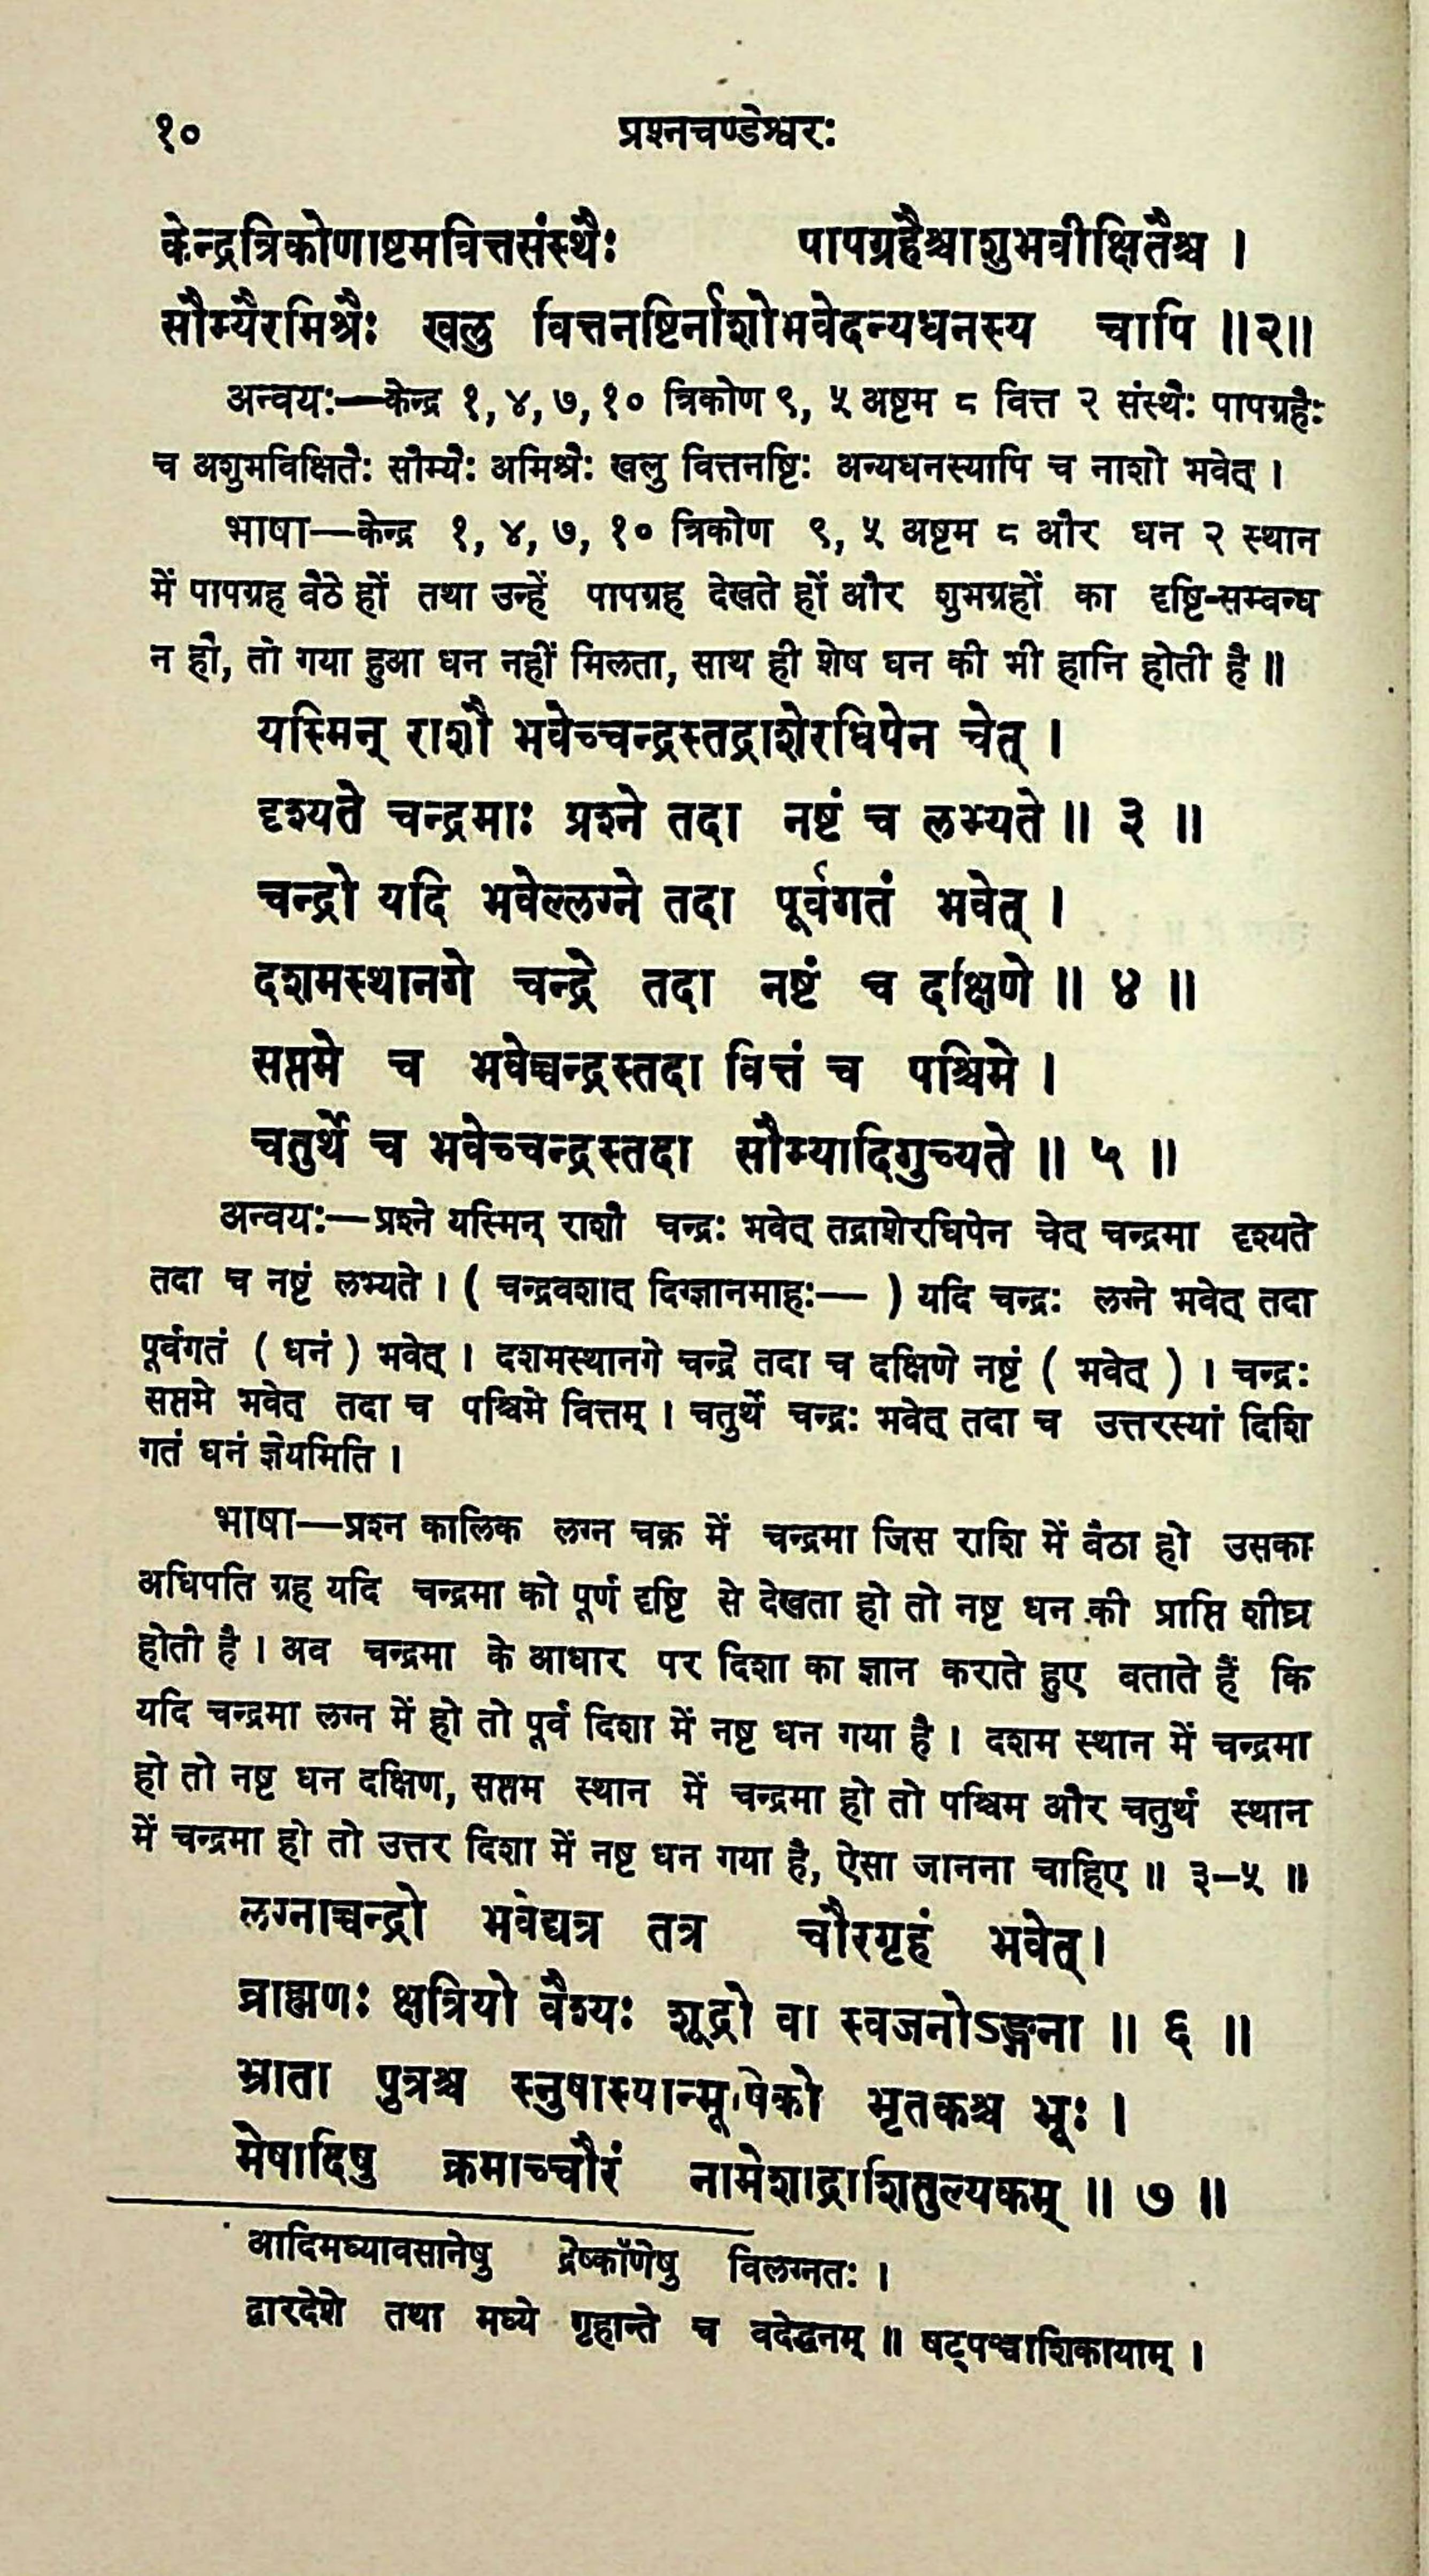 १०
प्रश्नचण्डेश्वरः
केन्द्रत्रिकोणाष्टमवित्तसंस्थैः पापग्रहैश्चाशुभवीक्षितैश्च ।
सौम्यैरमिश्रैः खलु वित्तनष्टिर्नाशोभवेदन्यधनस्य चापि ॥२॥
अन्वयः—केन्द्र १, ४, ७, १० त्रिकोण ९, ५ अष्टम ८ वित्त २ संस्थैः पापग्रहैः
च अशुभविक्षितैः सौम्यैः अमिश्रैः खलु वित्तनष्टिः अन्यधनस्यापि च नाशो भवेत् ।
भाषा—केन्द्र १, ४, ७, १० त्रिकोण ९, ५ अष्टम ८ और धन २ स्थान
में पापग्रह वैठे हों तथा उन्हें पापग्रह देखते हों और शुभग्रहों का दृष्टि-सम्वन्ध
न हो, तो गया हुआ धन नहीं मिलता, साथ ही शेष धन की भी हानि होती है ॥
यस्मिन् राशौ भवेच्चन्द्रस्तद्राशेरधिपेन चेत् ।
दृश्यते चन्द्रमाः प्रश्ने तदा नष्टं च लभ्यते ॥ ३ ॥
चन्द्रो यदि भवेल्लग्ने तदा पूर्वगतं भवेत् ।
दशमस्थानगे चन्द्रे तदा नष्टं च दक्षिणे ॥ ४ ॥
सप्तमे च भवेच्चन्द्रस्तदा वित्तं च पश्चिमे ।
चतुर्थे च भवेच्चन्द्रस्तदा सौम्यादिगुच्यते ॥ ५ ॥
अन्वयः—प्रश्ने यस्मिन् राशौ चन्द्रः भवेत् तद्राशेरधिपेन चेत् चन्द्रमा दृश्यते
तदा च नष्टं लभ्यते । ( चन्द्रवशात् दिग्ज्ञानमाहः— ) यदि चन्द्रः लग्ने भवेत् तदा
पूर्वगतं ( धनं ) भवेत् । दशमस्थानगे चन्द्रे तदा च दक्षिणे नष्टं ( भवेत् ) । चन्द्रः
सप्तमे भवेत् तदा च पश्चिमे वित्तम् । चतुर्थे चन्द्रः भवेत् तदा च उत्तरस्यां दिशि
गतं धनं ज्ञेयमिति ।
भाषा—प्रश्न कालिक लग्न चक्र में चन्द्रमा जिस राशि में वैठा हो उसका
अधिपति ग्रह यदि चन्द्रमा को पूर्ण दृष्टि से देखता हो तो नष्ट धन की प्राप्ति शीघ्र
होती है । अव चन्द्रमा के आधार पर दिशा का ज्ञान कराते हुए वताते हैं कि
यदि चन्द्रमा लग्न में हो तो पूर्व दिशा में नष्ट धन गया है । दशम स्थान में चन्द्रमा
हो तो नष्ट धन दक्षिण, सप्तम स्थान में चन्द्रमा हो तो पश्चिम और चतुर्थ स्थान
में चन्द्रमा हो तो उत्तर दिशा में नष्ट धन गया है, ऐसा जानना चाहिए ॥ ३–५ ॥
लग्नाच्चन्द्रो भवेद्यत्र तत्र चौरगृहं भवेत्।
व्राह्मणः क्षत्रियो वैश्यः शूद्रो वा स्वजनोऽङ्गना ॥ ६ ॥
भ्राता पुत्रश्च स्नुषास्यान्मूषिको भृतकश्च भूः ।
मेषादिषु क्रमाच्चौरं नामेशाद्राशितुल्यकम् ॥ ७ ॥
आदिमध्यावसानेषु द्रेष्काॅणेषु विलग्नतः ।
द्वारदेशे तथा मध्ये गृहान्ते च वदेद्धनम् ॥ षट्पञ्चाशिकायाम् ।